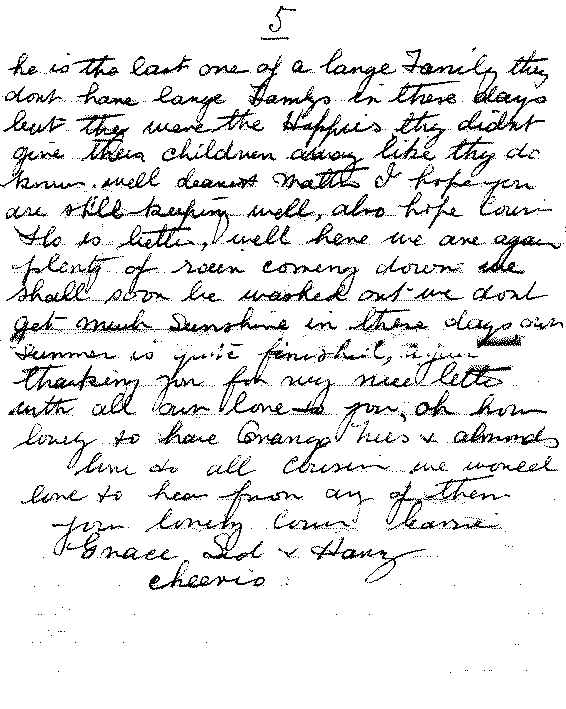 5
he is the last one of a large Family they
dont have large Familys in these days
but they were the Happies they didnt
give their children away like they do
know. well dearest Mattie I hope you
are still keeping well, also hope Cousin
Flo is better, well here we are again
plenty of rain coming down we
shall soon be washed out we dont
get much Sunshine in these days our
Summer is quite finished, again
thanking you for my nice letter
with all our love to you, oh how
lovely to have Orange trees & almonds
love to all Cousin we would
love to hear from any of them
your loving Cousin
Grace Sid & Harry
cheerio